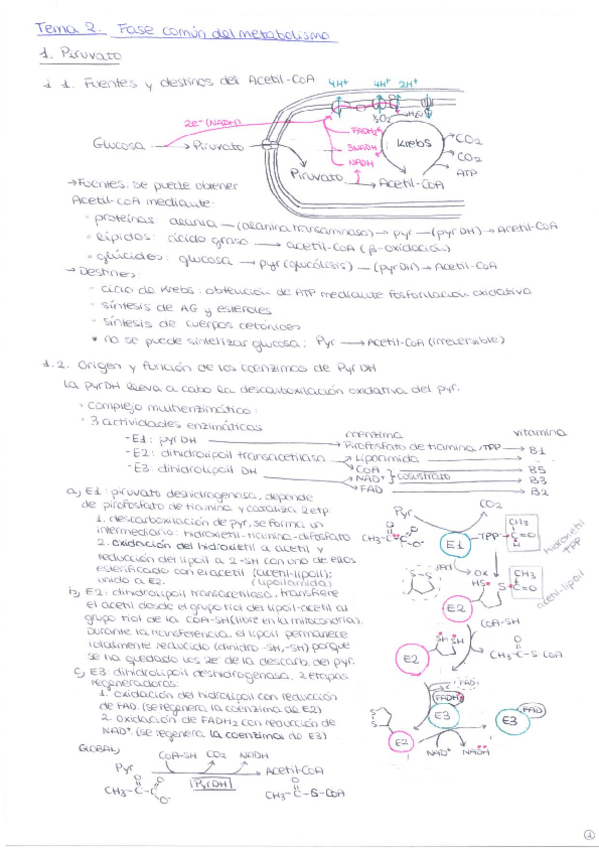 Tema 2. Fase común del metabolismo
1. Piruvato
1.1. Fuentes y destinos del Acetil-CoA
4H+ 4H+ 2H+
½O2 H2O
2e- (NADH)
FADH2
3NADH
NADH
Krebs
CO2
CO2
ATP
Glucosa → Piruvato
Piruvato → Acetil-CoA
→ Fuentes: se puede obtener
Acetil-CoA mediante:
· proteínas: alanina —(alanina transaminasa)→ pyr —(pyr DH)→ Acetil-CoA
· lípidos: ácido graso → acetil-CoA (β-oxidación)
· glúcidos: glucosa → pyr (glucólisis) —(pyr DH)→ Acetil-CoA
→ Destinos:
· ciclo de Krebs: obtención de ATP mediante fosforilación oxidativa
· síntesis de AG y esteroles
· síntesis de cuerpos cetónicos
* no se puede sintetizar glucosa: Pyr → Acetil-CoA (irreversible)
1.2. Origen y función de los coenzimas de Pyr DH
La pyrDH lleva a cabo la descarboxilación oxidativa del pyr.
· complejo multienzimático:
· 3 actividades enzimáticas
vitamina
- E1: pyr DH → Pirofosfato de tiamina/TPP → B1
- E2: dihidrolipoil transacetilasa → Lipoamida
CoA → B5
- E3: dihidrolipoil DH
NAD+ → B3
FAD → B2
cosustrato
a) E1: piruvato deshidrogenasa, depende
de pirofosfato de tiamina y cataliza 2 etp.
1. descarboxilación de pyr, se forma un
intermediario: hidroxietil-tiamina-difosfato
2. oxidación del hidroxietil a acetil y
reducción del lipoil a 2-SH con uno de ellos
esterificado con el acetil (acetil-lipoil);
unido a E2. (lipoilamida)
b) E2: dihidrolipoil transacetilasa, transfiere
el acetil desde el grupo tiol del lipoil-acetil al
grupo tiol de la CoA-SH (libre en la mitocondria).
Durante la transferencia, el lipoil permanece
totalmente reducido (dihidro -SH, -SH) porque
se ha quedado los 2e- de la descarb. del pyr.
c) E3: dihidrolipoil deshidrogenasa, 2 etapas
regeneradoras:
1. oxidación del hidrolipoil con reducción
de FAD. (se regenera la coenzima de E2)
2. oxidación de FADH2 con reducción de
NAD+. (se regenera la coenzima de E3)
Pyr
CO2
E1
TPP
CH3
C=O
hidroxietil
TPP
S-S
OX
HS
S
CH3
C=O
acetil-lipoil
E2
CoA-SH
SH SH
E2
CH3-C-S-CoA
O
FAD
FADH2
E3
E3
FAD
E2
NAD+ NADH
GLOBAL)
CoA-SH CO2 NADH
Pyr → Acetil-CoA
PyrDH
CH3-C-C
O O O-
CH3-C-S-CoA
O
1